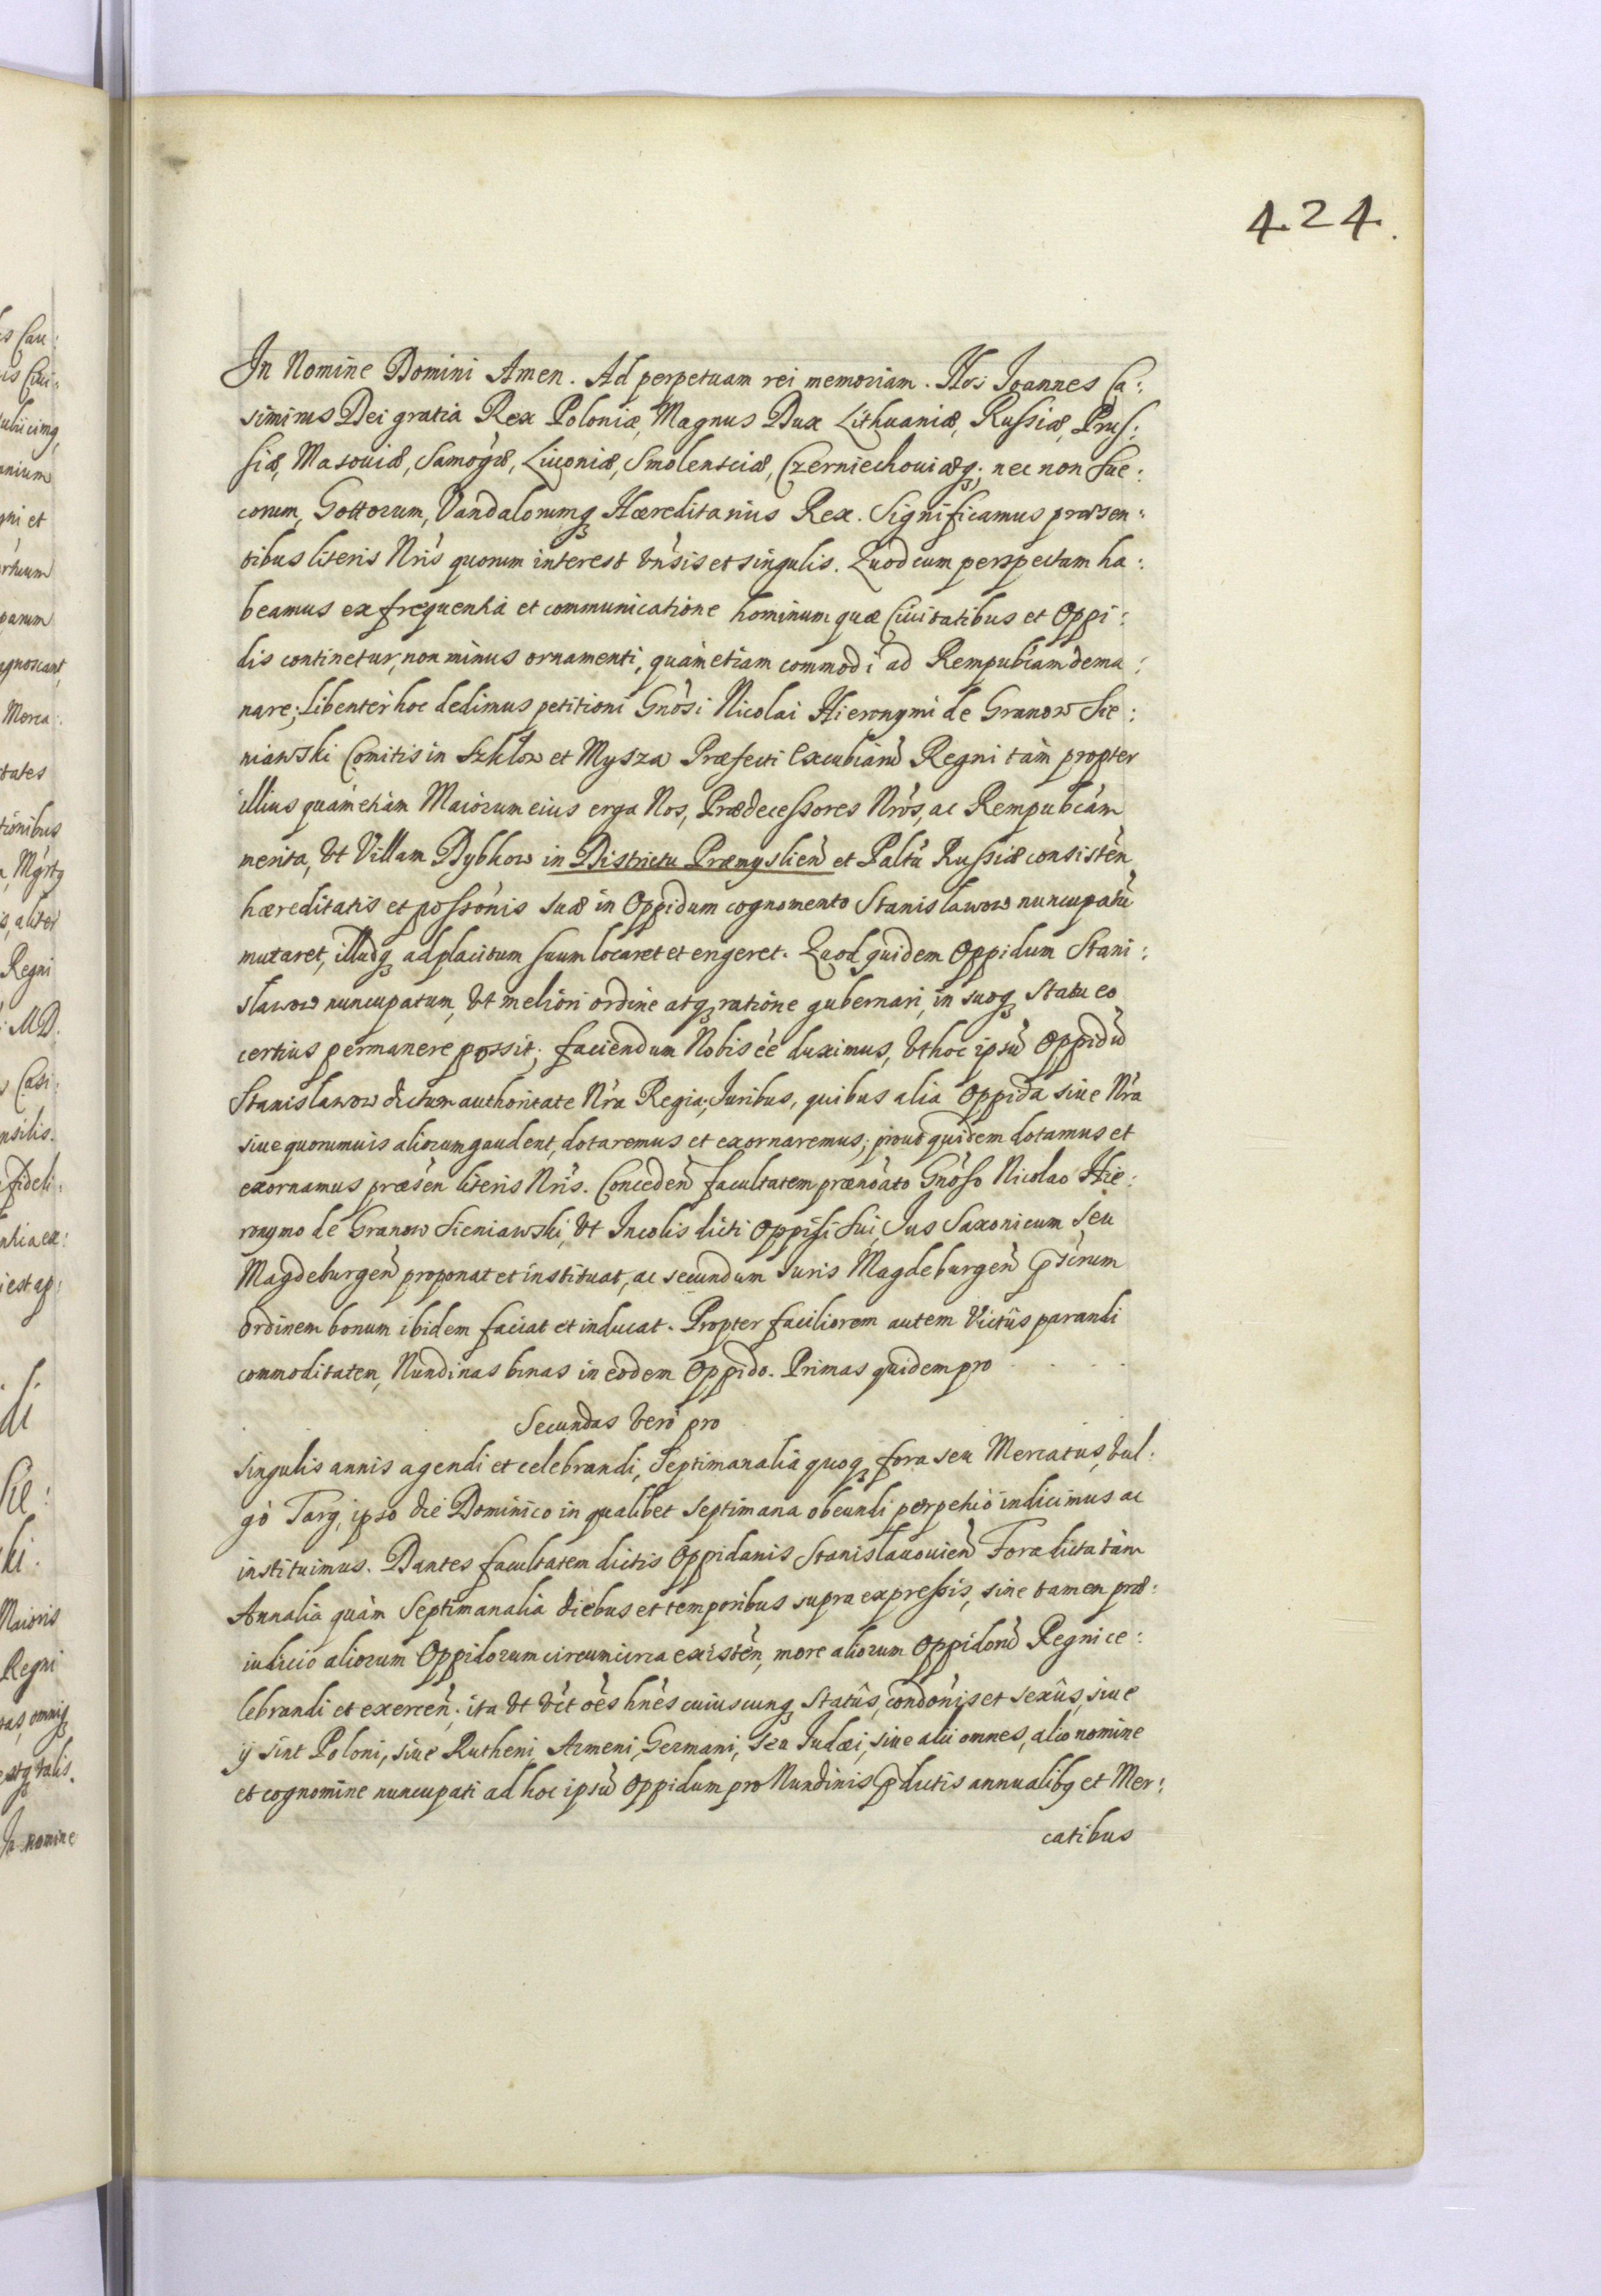 424.
In Nomine Domini Amen. Ad perpetuam rei memoriam. Nos Joannes Ca:
simirus Dei gratia Rex Poloniæ, Magnus Dux Lithuaniæ, Russiæ, Prus:
siæ, Masouiæ, Samogæ, Liuoniæ, Smolensciæ, Czerniechouiæq; nec non Sue:
corum, Gottorum, Vandalorumq Hæreditarius Rex. Significamus præsen:
tibus literis Nris quorum interest vnsis et singulis. Quod cum perspectum ha:
beamus ex frequentia et communicatione hominum quæ Ciuitatibus et Oppi:
dis continetur, non minus ornamenti, quàm etiam commodi ad Rempubcam dema:
nare; libenter hoc dedimus petitioni Gnosi Nicolai Hieronymi de Granow Sie:
niawski Comitis in Szklow et Mysza Præfecti Excubiarũ Regni tàm propter
illius quàm etiàm Maiorum eius erga Nos, Prædecessores Nros, ac Rempubcàm
merita, vt Villam Dybkow in Districtu Præmyslieñ et Paltũ Russiæ consisteñ
hæreditatis et possonis suæ in Oppidum cognomento Stanislawow nuncupatũ
mutaret, illudq ad placitum suum locaret et erigeret. Quod quidem Oppidum Stani:
slawow nuncupatum, vt meliori ordine atq ratione gubernari, in suoq statu eo
certius permanere possit; faciendum Nobis ee duximus, vt hoc ipsũ Oppidũ
Stanislawow dictum authoritate Nra Regia, Juribus, quibus alia Oppida siue Nra
siue quorumuis aliorum gaudent, dotaremus et exornaremus; prout quidem dotamus et
exornamus præseñ literis Nris. Concedeñ facultatem prænoato Gnoso Nicolao Hie:
ronymo de Granow Sieniawski, vt Incolis dicti Oppidi sui, Jus Saxonicum seu
Magdeburgeñ proponat et instituat, ac secundum Juris Magdeburgeñ pscrum
ordinem bonum ibidem faciat et inducat. Propter faciliorem autem Victûs parandi
commoditatem, Nundinas binas in eodem Oppido. Primas quidem pro . . . .
Secundas verò pro
singulis annis agendi et celebrandi, Septimanalia quoq fora seu Mercatus, vul:
gò Targ, ipso die Dominico in qualibet septimana obeundi perpetuò indicimus ac
instituimus. Dantes facultatem dictis Oppidanis Stanislauouieñ Fora dicta tàm
Annalia quàm Septimanalia diebus et temporibus supra expressis, sine tamen præ:
iudicio aliorum Oppidorum circumcirca existeñ, more aliorum Oppidorũ Regni ce:
lebrandi et exerceñ; ita vt vct oes hnes cuiuscunq statûs, condonis et sexûs, siue
ij sint Poloni, siue Rutheni, Armeni, Germani, seu Iudæi, siue alii omnes, alio nomine
et cognomine nuncupati ad hoc ipsũ Oppidum pro Nundinis pdictis annualibq et Mer:
catibus